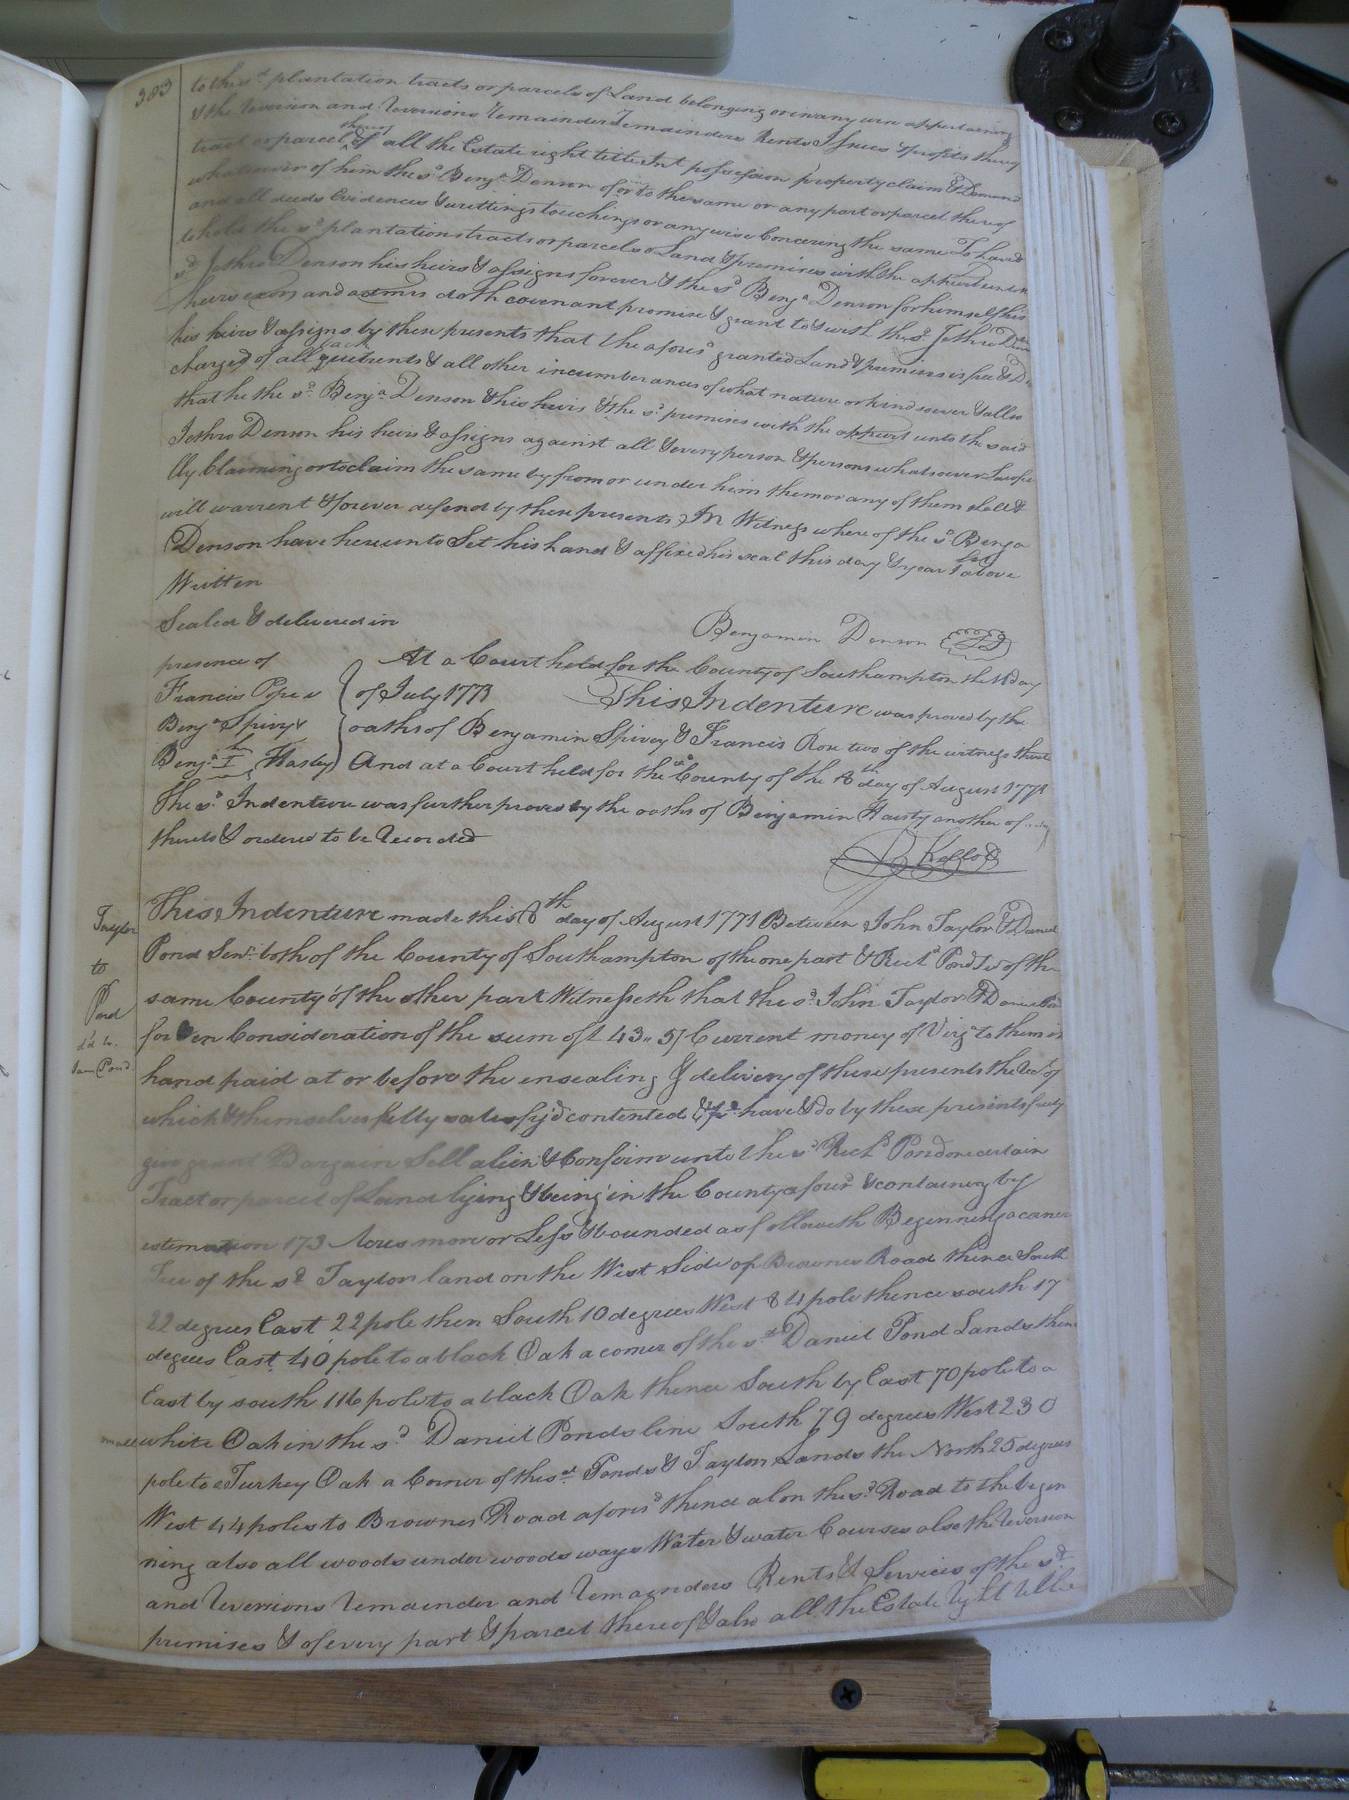 383
to the sd. plantation tracts or parcels of Land belonging or in any wise appertaining
& the reversion and reversions remainder remainders Rents Issues & profits thereof
tract or parcel thereof & all the Estate right title Int possession property claim & Demand
whatsoever of him the sd. Benja. Denson of in or to the same or any part or parcel thereof
and all deeds Evidences & writtings touching or any wise Concering the same To have &
to hold the sd. plantation tracts or parcels of Land & premises with the
sd. Jethro Denson his heirs & assigns forever & the sd. Benja. Denson for himself his
heirs exors and admrs doth covenant promise & grant to & with the sd. Jethro Denson
his heirs & assigns by these presents that the afores'd granted Land & premises is free &
charged of all quitrents & all other incumberances of what nature or kind soever & allso
that he the sd. Benja. Denson & his heirs & the sd. premises with the appurt unto the said
Jethro Denson his heirs & assigns against all & every person & persons whatsoever
ly Claiming or to claim the same by from or under him them or any of them shall &
will warrent & forever defend by these presents, In Witness where of the sd. Benja
Denson have hereunto Set his hand & affixed his seal this day & year first above
Written
Sealed & delivered in
Benjamin Denson
presence of
At a Court held for the County of Southampton the day
Francis
of July 1773 This Indenture was proved by the
Benja Spivey
oaths of Benjamin Spivey & Francis two of the witness thereto
Benja. Hasley
And at a Court held for the sd County of the 8th day of August 1771
The sd. Indenture was further proved by the oaths of Benjamin Hasty another of
thereto & ordered to be Recorded
Taylor
to
Pond
This Indenture made this 8th day of August 1771 Between John Taylor & Daniel
Pond Senr. both of the County of Southampton of the one part & Richd Pond of the
same County of the other part Witnesseth that the sd. John Taylor & Daniel Pond
for & en Consideration of the sum of £ 43..5/ Current money of Virga to them in
hand paid at or before the ensealing & delivery of these presents the of
which & themselves fully satisfy'd contented & have & do by these presents
give grant Bargain Sell alien & Confirm unto the sd Richd Pond one certain
Tract or parcel of Land lying & being in the County afores'd & containing by
estemation 173 Acres more or Less & bounded as followeth Beginning a corner
Tree of the sd. Taylor land on the West Side of Brownes Road thence South
22 degrees East 22 pole then South 10 degrees West 84 pole thence south 17
degrees East 40 pole to a black Oak a corner of the sd. Daniel Pond Lands thence
East by south 116 pole to a black Oak thence South by East 70 pole to a
white Oak in the sd Daniel Ponds line South 79 degrees West 230
pole to a Turkey Oak a Corner of the sd Ponds & Taylors Lands the North 25 degrees
West 44 poles to Brownes Road afores'd thence alon the sd. Road to the begin
ning also all woods under woods ways Water & water Courses also the reversion
and reversions remainder and remaynders Rents & Services of the sd.
premises & of every part & parcel thereof & also all the Estate